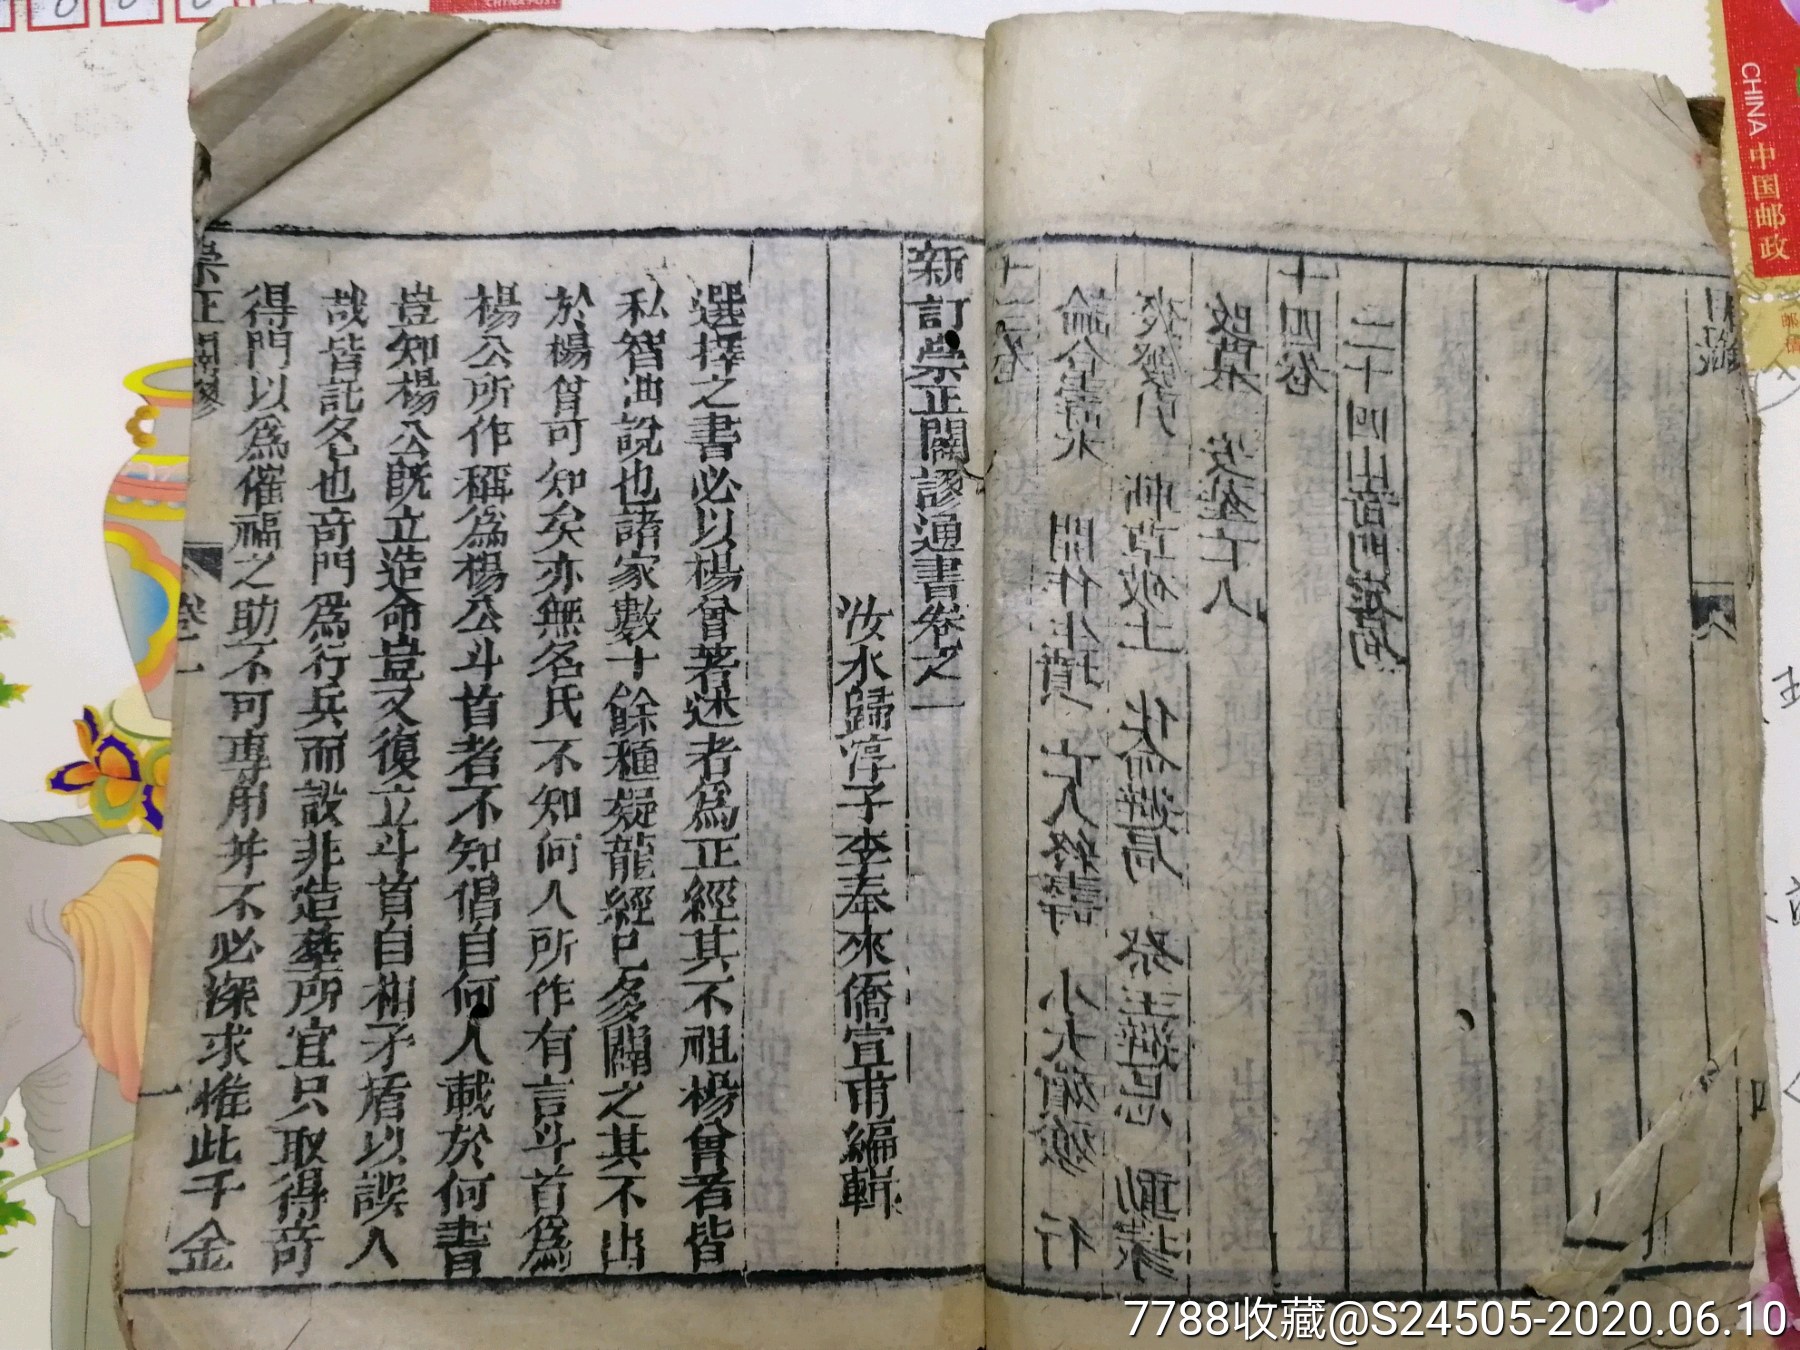 十三卷
論合壽木　開作生墳　亡人終壽　小大殯殮　行
喪發引　斬草破土　祭主避忌
改葬　安金亡人
十四卷
二十四山奇門定局
目錄
新訂崇正闢謬通書卷之一
汝水歸淳子李奉來僑宣甫編輯
選擇之書必以楊曾著述者為正經其不祖楊曾者皆
私智油說也諸家數十餘種疑龍經已多闢之其不出
於楊曾可知矣亦無名氏不知何人所作有言斗首為
楊公所作稱為楊公斗首者不知倡自何人載於何書
豈知楊公既立造命豈又復立斗首自相矛盾以誤人
哉皆託名也奇門為行兵而設非造葬所宜只取得奇
得門以為催福之助不可專用并不必深求惟此千金
崇正闢謬　卷一　一
CHINA 中国邮政
7788收藏@S24505-2020.06.10